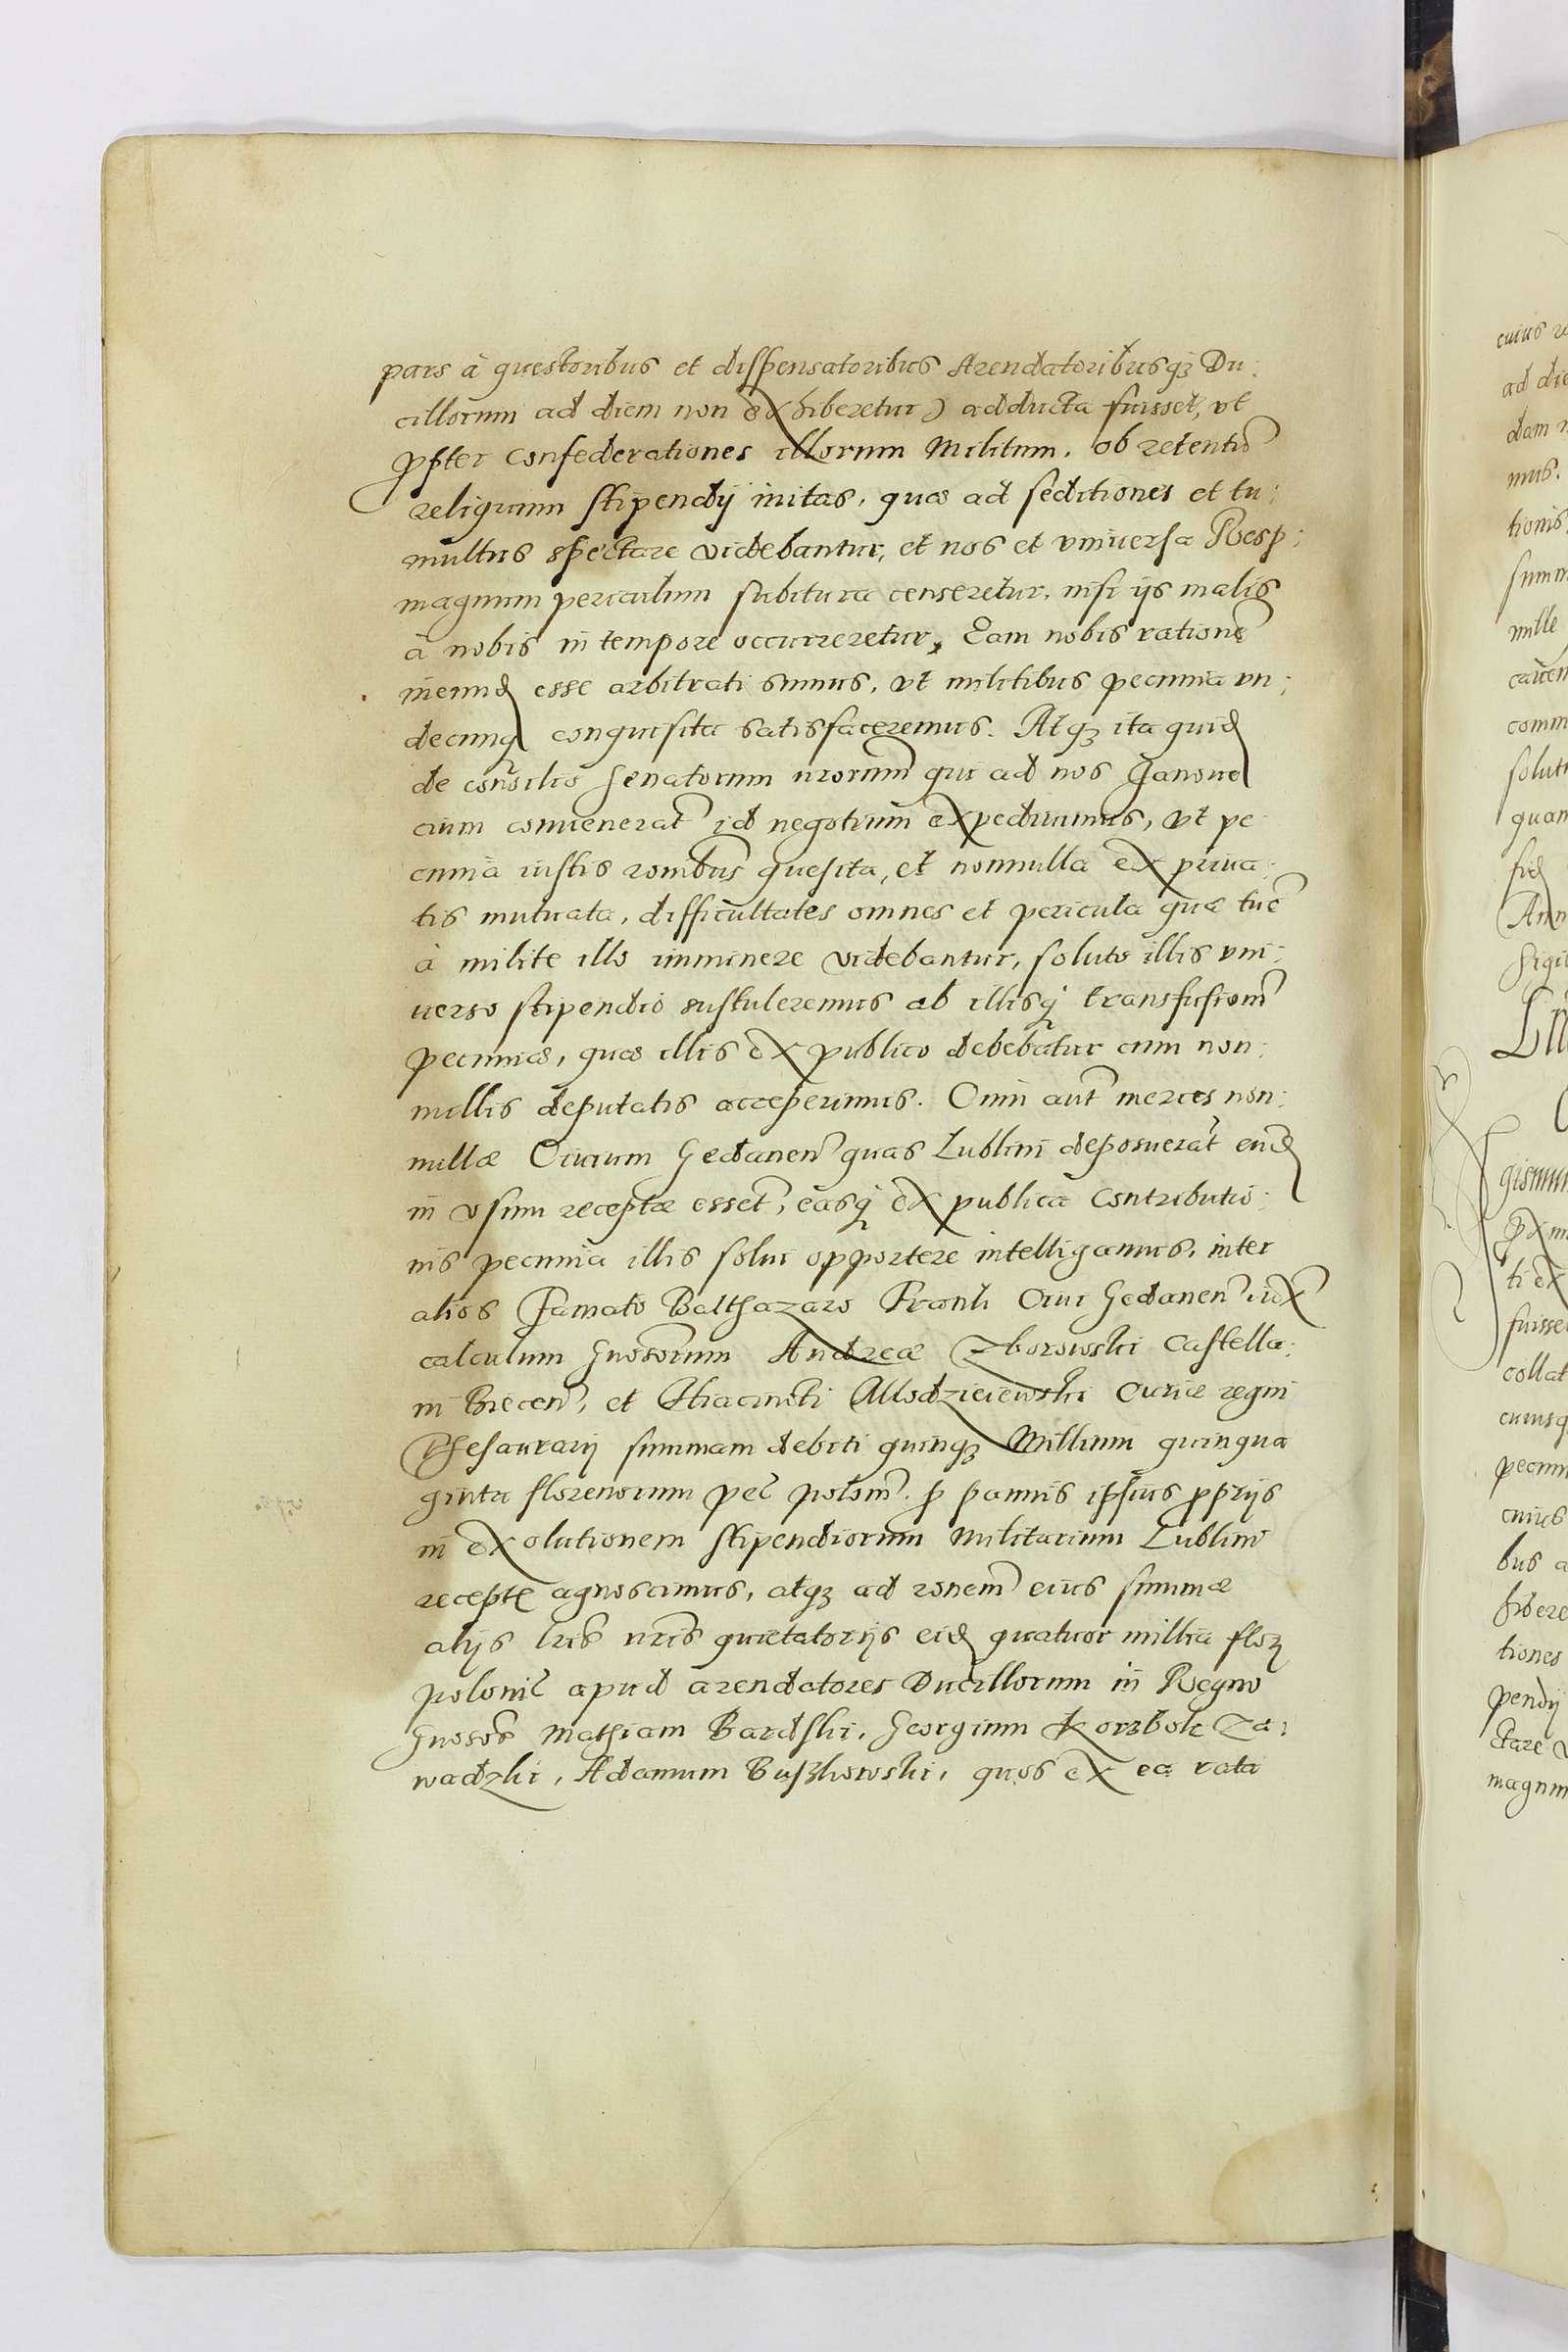 pars à quęstoribus et dispensatoribus Arendatoribusq₃ Du:
cillorum ad diem non exhiberetur) adducta fuisset, vt
ꝓpter confederationes illorum Militum, ob retentũ
reliquum stipendij initas, quæ ad seditiones et tu:
multus spectare videbantur, et nos et vniuersa Resp:
magnum periculum subitura censeretur, nisi ijs malis
à nobis in tempore occurreretur, Eam nobis rationẽ
ineund esse arbitrati sumus, vt militibus pecunia vn:
decunq conquisita satisfaceremus. Atq₃ ita quid
de consilio Senatorum nrorum qui ad nos Janoue
cium conuenerat id negotium expediuimus, vt pe
cunia iustis ronibus quesita, et nonnulla ex priua:
tis mutuata, difficultates omnes et pericula quæ tuc
à milite illo imminere videbantur, soluto illis vni:
uerso stipendio sustuleremus ab illisq transfusiom
pecuniæ, quæ illis ex publico debebatur cum non:
nullis deputatis acceperimus. Cum aut merces non:
nullæ Ciuium Gedanen quas Lublini deposuerat eund
in vsum receptæ esset, easq ex publica Contributio:
nis pecunia illis solui opportere intelligamus, inter
alios Famato Balthazaro Frank Ciui Gedanen iux
calculum Gnosorum Andreæ Zborowski Castella:
ni Biecen, et Hiacincti Mlodzieiewski Curiæ regni
Thesaurarij summam debiti quinq₃ Millium quinqua
ginta florenorum pec polom. ꝓ pannis ipsius ꝓprijs
in exolutionem stipendiorum Militarium Lublini
recept agnoscimus, atq₃ ad ronem eius summæ
alijs lris nris quietatorijs eid quatuor millia floꝝ
polonic apud arendatores Ducillorum in Regno
Gnosos Mathiam Bardski, Georgium Korzbok Za:
wadzki, Adamum Buszkowski, quos ex ea rata
cuius
ad die
dam
mus.
tionis
summ
mille
comm
soluti
quam
fid
Ann
Sigi
gismun
ti ex
fuisse
collat
cuiusq
pecun
cuius
bus a
hibere
tiones
pendij
ctare v
magnum